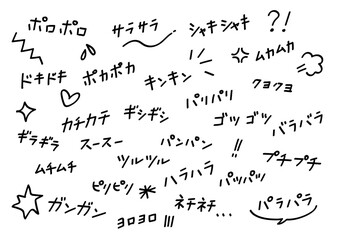 ポロポロ
サラサラ
シャキシャキ
?!
ムカムカ
ドキドキ
ポカポカ
キンキン
クヨクヨ
パリパリ
カチカチ
ギシギシ
ゴツゴツ
バラバラ
ギラギラ
スースー
パンパン
!!
プチプチ
ムチムチ
ツルツル
ハラハラ
パッパッ
ピリピリ
ガンガン
ヨロヨロ
!!!
ネチネチ...
パラパラ